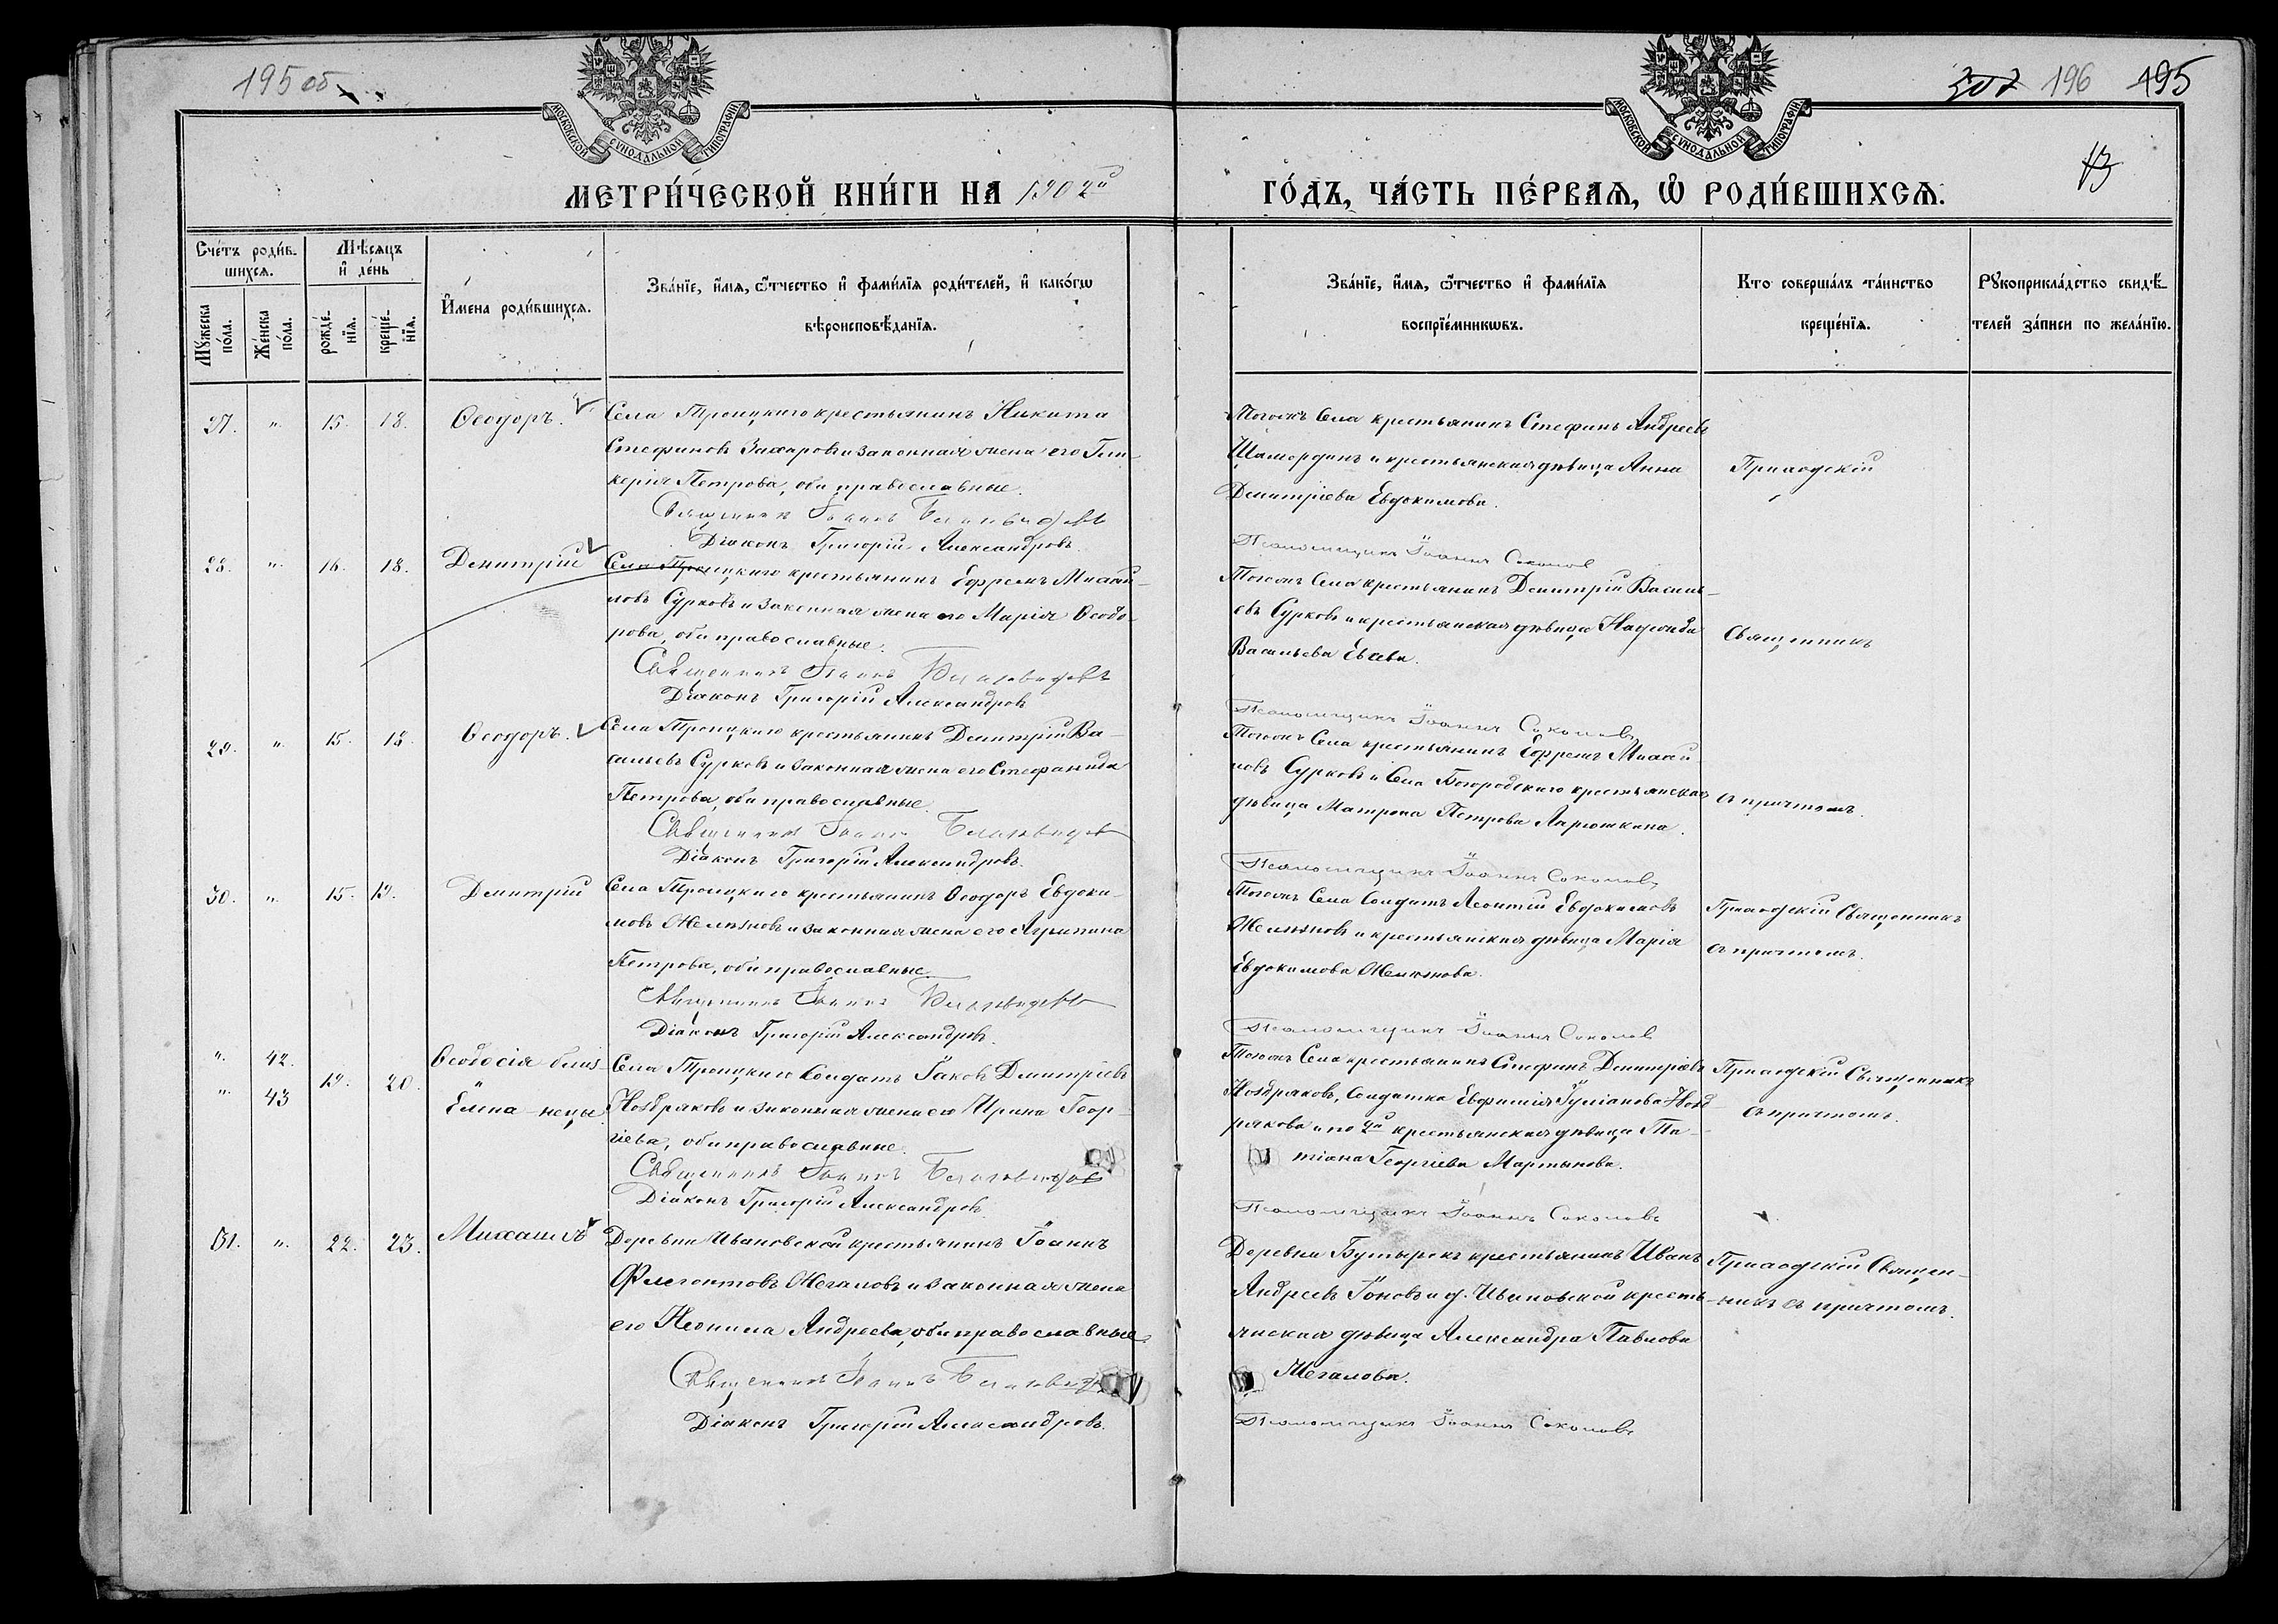 195 об
307 196 195
МОСКОВСКОЙ СѴНОДАЛЬНОЙ ТИПОГРАФІИ
МОСКОВСКОЙ СѴНОДАЛЬНОЙ ТИПОГРАФІИ
13
МЕТРИ́ЧЕСКОЙ КНИ́ГИ НА 1902й
ГО́ДЪ, ЧА́СТЬ ПЕ́РВАЯ, Ѽ РОДИ́ВШИХСЯ.
Сче́тъ роди́в-
шихся.
Мѣ́сяцъ
и҆ де́нь
Мꙋ́жеска по́ла.
Же́нска по́ла.
рожде́-
нїя.
креще́-
нїя.
И҆мена роди́вшихся.
Зва́нїе, и҆́мя, ѻ҆́тчество и҆ фами́лїя роди́телей, и҆ како́гѡ
вѣроисповѣ́данїя.
Зва́нїе, и҆́мя, ѻ҆́тчество и҆ фами́лїя
воспрїе́мникѡвъ.
Кто соверша́лъ та́инство
креще́нїя.
Рꙋкоприкла́дство свидѣ́-
телей за́писи по жела́нїю.
27. " 15. 18. Ѳеодоръ.
Села Троицкаго крестьянинъ Никита
Стефановъ Захаровъ и законная жена его Гли-
керія Петрова, оба православные.
Священникъ Іоаннъ Беневидовъ
Діаконъ Григорій Александровъ.
Тогожъ села крестьянинъ Стефанъ Андреевъ
Шамординъ и крестьянская дѣвица Анна
Димитріева Евдокимова.
Псаломщикъ Іоаннъ Соколовъ
Приходскій
28. " 16. 18. Димитрій
Села Троицкаго крестьянинъ Ефремъ Михай-
ловъ Сурковъ и законная жена его Марія Ѳеодо-
рова, оба православные.
Священникъ Іоаннъ
Діаконъ Григорій Александровъ
Тогожъ села крестьянинъ Димитрій Василь-
евъ Сурковъ и крестьянская дѣвица
Васильева Евсева.
Псаломщикъ Іоаннъ Соколовъ
Священникъ
29. " 15. 18. Ѳеодоръ.
Села Троицкаго крестьянинъ Димитрій Ва-
сильевъ Сурковъ и законная жена его Стефанида
Петрова, оба православные.
Священникъ Іоаннъ
Діаконъ Григорій Александровъ.
Тогожъ села крестьянинъ Ефремъ Михай-
ловъ Сурковъ и села Богородскаго крестьянская
дѣвица Матрона Петрова Ларюшкина.
Псаломщикъ Іоаннъ Соколовъ
съ причтомъ.
30. " 15. 19. Димитрій
Села Троицкаго крестьянинъ Ѳеодоръ Евдоки-
мовъ Желѣзновъ и законная жена его Агрипина
Петрова, оба православные.
Священникъ Іоаннъ
Діаконъ Григорій Александровъ.
Тогожъ села солдатъ Леонтій Евдокимовъ
Желѣзновъ и крестьянская дѣвица Марія
Евдокимова Желѣзнова.
Псаломщикъ Іоаннъ Соколовъ
Приходскій Священникъ
съ причтомъ.
" 42. Ѳеодосія близ-
" 43 19. 20. Елена - нецы.
Села Троицкаго солдатъ Іаковъ Димитріевъ
Ноздряковъ и законная жена его Ирина Геор-
гіева, оба православные.
Священникъ Іоаннъ
Діаконъ Григорій Александровъ
Тогожъ села крестьянинъ Стефанъ Димитріевъ
Ноздряковъ, солдатка Евфимія Іуліанова Нозд-
рякова и по 2й крестьянская дѣвица Та-
тіана Георгіева Мартынова.
Псаломщикъ Іоаннъ Соколовъ
Приходскій Священникъ
съ причтомъ.
31. " 22. 23. Михаилъ
Деревни Ивановской крестьянинъ Іоаннъ
Флегонтовъ Жегаловъ и законная жена
его Неонила Андреева, оба православные.
Священникъ Іоаннъ
Діаконъ Григорій Александровъ.
Деревни Бутырекъ крестьянинъ Иванъ
Андреевъ Іоновъ и д. Ивановской кресть-
янская дѣвица Александра Павлова
Жегалова.
Псаломщикъ Іоаннъ Соколовъ
Приходскій Священ-
никъ съ причтомъ.